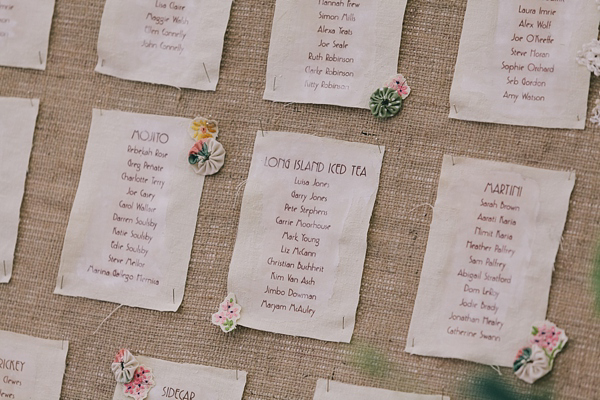 Lisa Claire
Maggie Welsh
Ellen Connelly
John Connelly
Hannah Frew
Simon Mills
Alexa Teati
Joe Seale
Ruth Robinson
Clarke Robinson
Robinson
Laura Imrie
Alex Wolf
Joe O'Keeffe
Steve Moran
Sophie Orchard
Seb Gordon
Amy Watson
MOJITO
Rebekah Rose
Greg Penate
Charlotte Terry
Joe Carey
Carol Wallace
Darren Soulsby
Katie Soulsby
Edie Soulsby
Steve Mellor
Marina Gallego
LONG ISLAND ICED TEA
Luisa Jones
Garry Jones
Pete Stephens
Carrie Moorhouse
Mark Young
Liz McCann
Christian Buchheit
Kim Van Asch
Jimbo Dowman
Marjam McAuley
MARTINI
Sarah Brown
Aarati Karia
Nimit Karia
Heather Palfrey
Sam Palfrey
Abigail Stratford
Dom Leroy
Jodie Brady
Jonathan Mealey
Catherine Swann
RICKEY
Clewes
Clewes
SIDECAR